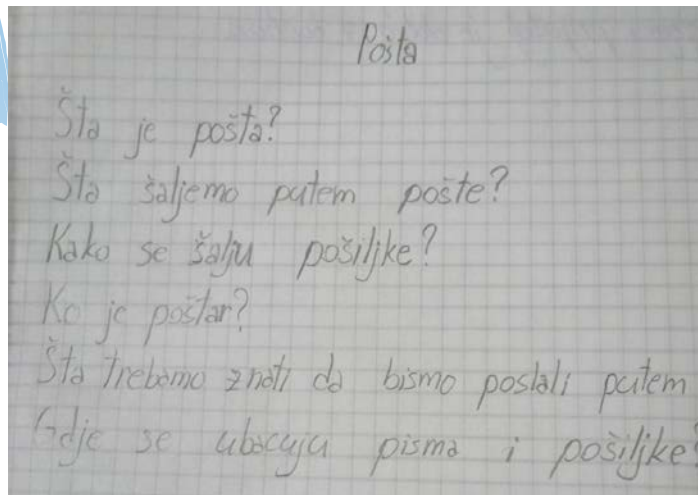 Pošta
Šta je pošta?
Šta šaljemo putem pošte?
Kako se šalju pošiljke?
Ko je poštar?
Šta trebamo znati da bismo poslali putem
Gdje se ubacuju pisma i pošiljke?